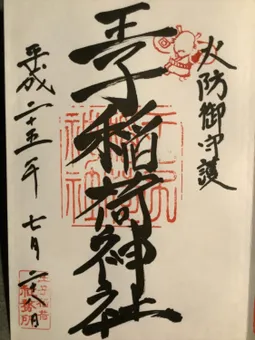 火防御守護
王子稲荷神社
平成二十五年七月二十八日